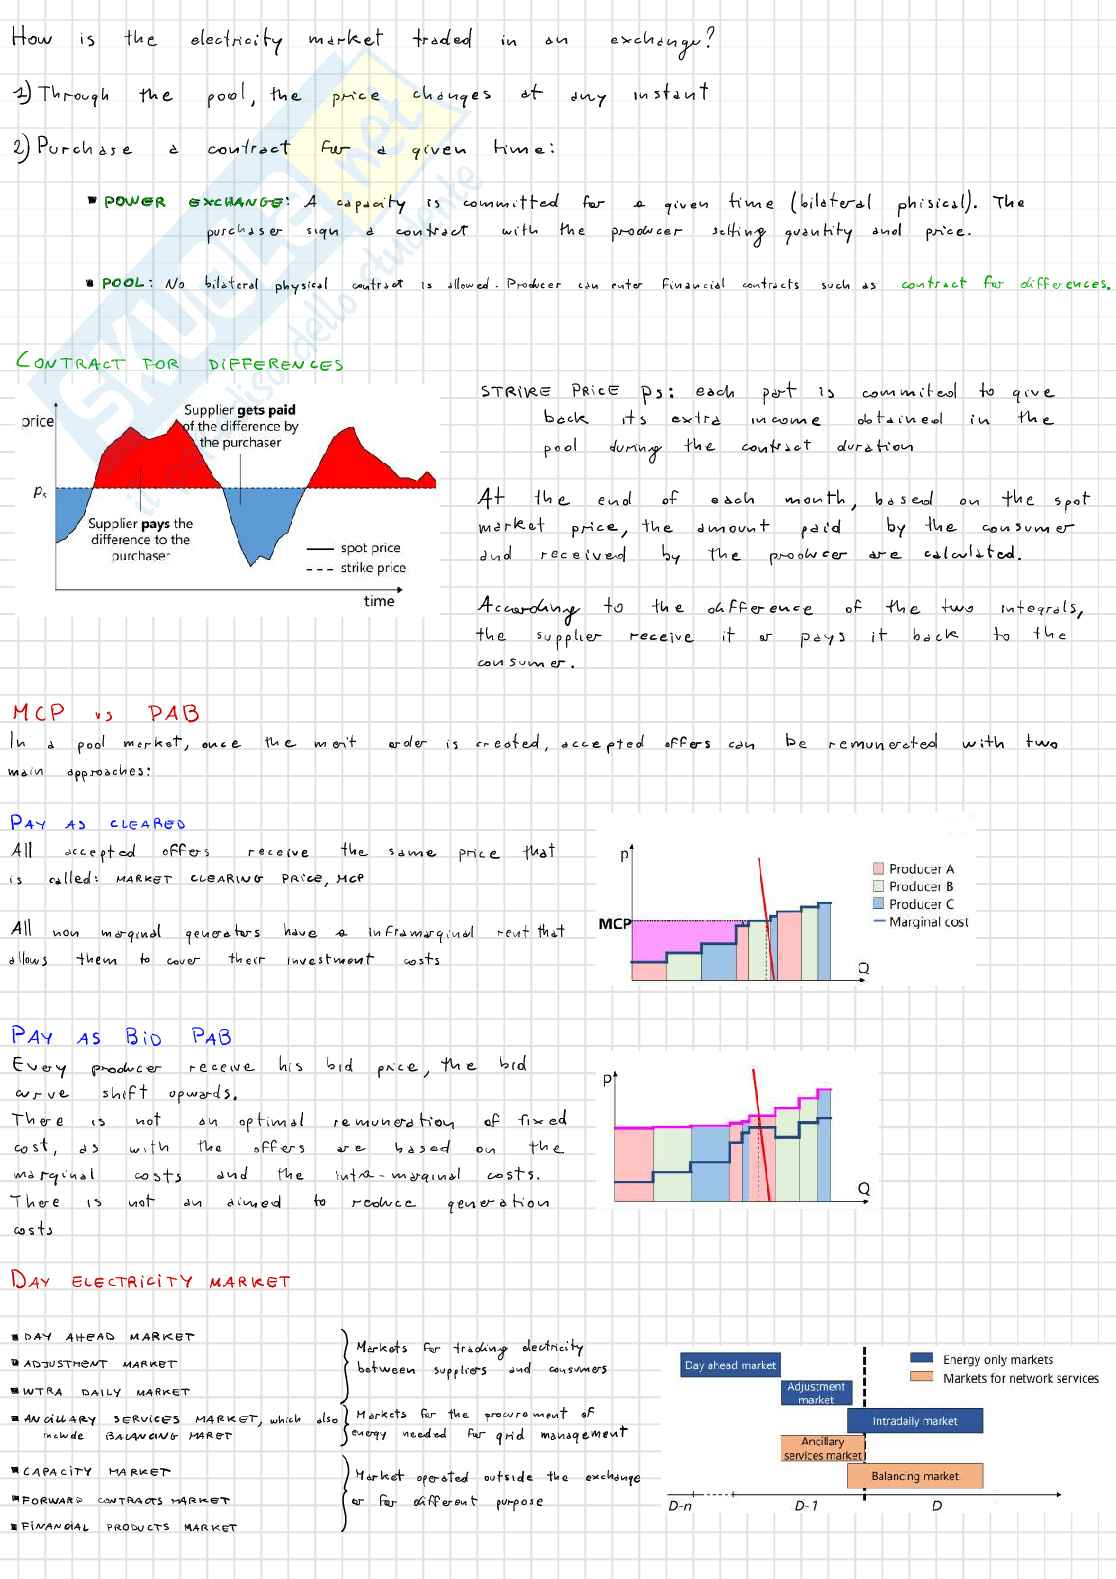 How is the electricity market traded in an exchange?
1) Through the pool, the price changes at any instant
2) Purchase a contract for a given time:
▪ POWER EXCHANGE: A capacity is committed for a given time (bilateral phisical). The
purchaser sign a contract with the producer setting quantity and price.
▪ POOL: No bilateral physical contract is allowed. Producer can enter financial contracts such as contract for differences.
SKUOLA.net
CONTRACT FOR DIFFERENCES
price
Supplier gets paid
of the difference by
the purchaser
Ps
Supplier pays the
difference to the
purchaser
spot price
strike price
time
STRIKE PRICE Ps: each part is commited to give
back its extra income obtained in the
pool during the contract duration
At the end of each month, based on the spot
market price, the amount paid by the consumer
and received by the producer are calculated.
According to the difference of the two integrals,
the supplier receive it or pays it back to the
consumer.
MCP vs PAB
In a pool market, once the merit order is created, accepted offers can be remunerated with two
main approaches:
PAY AS CLEARED
All accepted offers receive the same price that
is called: MARKET CLEARING PRICE, MCP
All non marginal generators have a inframarginal rent that
allows them to cover their investment costs
p
MCP
Q
Producer A
Producer B
Producer C
Marginal cost
PAY AS BID PAB
Every producer receive his bid price, the bid
curve shift upwards.
There is not an optimal remuneration of fixed
cost, as with the offers are based on the
marginal costs and the intra-marginal costs.
There is not an aimed to reduce generation
costs
p
Q
DAY ELECTRICITY MARKET
▪ DAY AHEAD MARKET
▪ ADJUSTMENT MARKET
▪ INTRA DAILY MARKET
Markets for trading electricity
between suppliers and consumers
▪ ANCILLARY SERVICES MARKET, which also
include BALANCING MARET
Markets for the procurement of
energy needed for grid management
▪ CAPACITY MARKET
▪ FORWARD CONTRACTS MARKET
▪ FINANCIAL PRODUCTS MARKET
Market operated outside the exchange
or for different purpose
Day ahead market
Adjustment
market
Intradaily market
Ancillary
services market
Balancing market
Energy only markets
Markets for network services
D-n
D-1
D